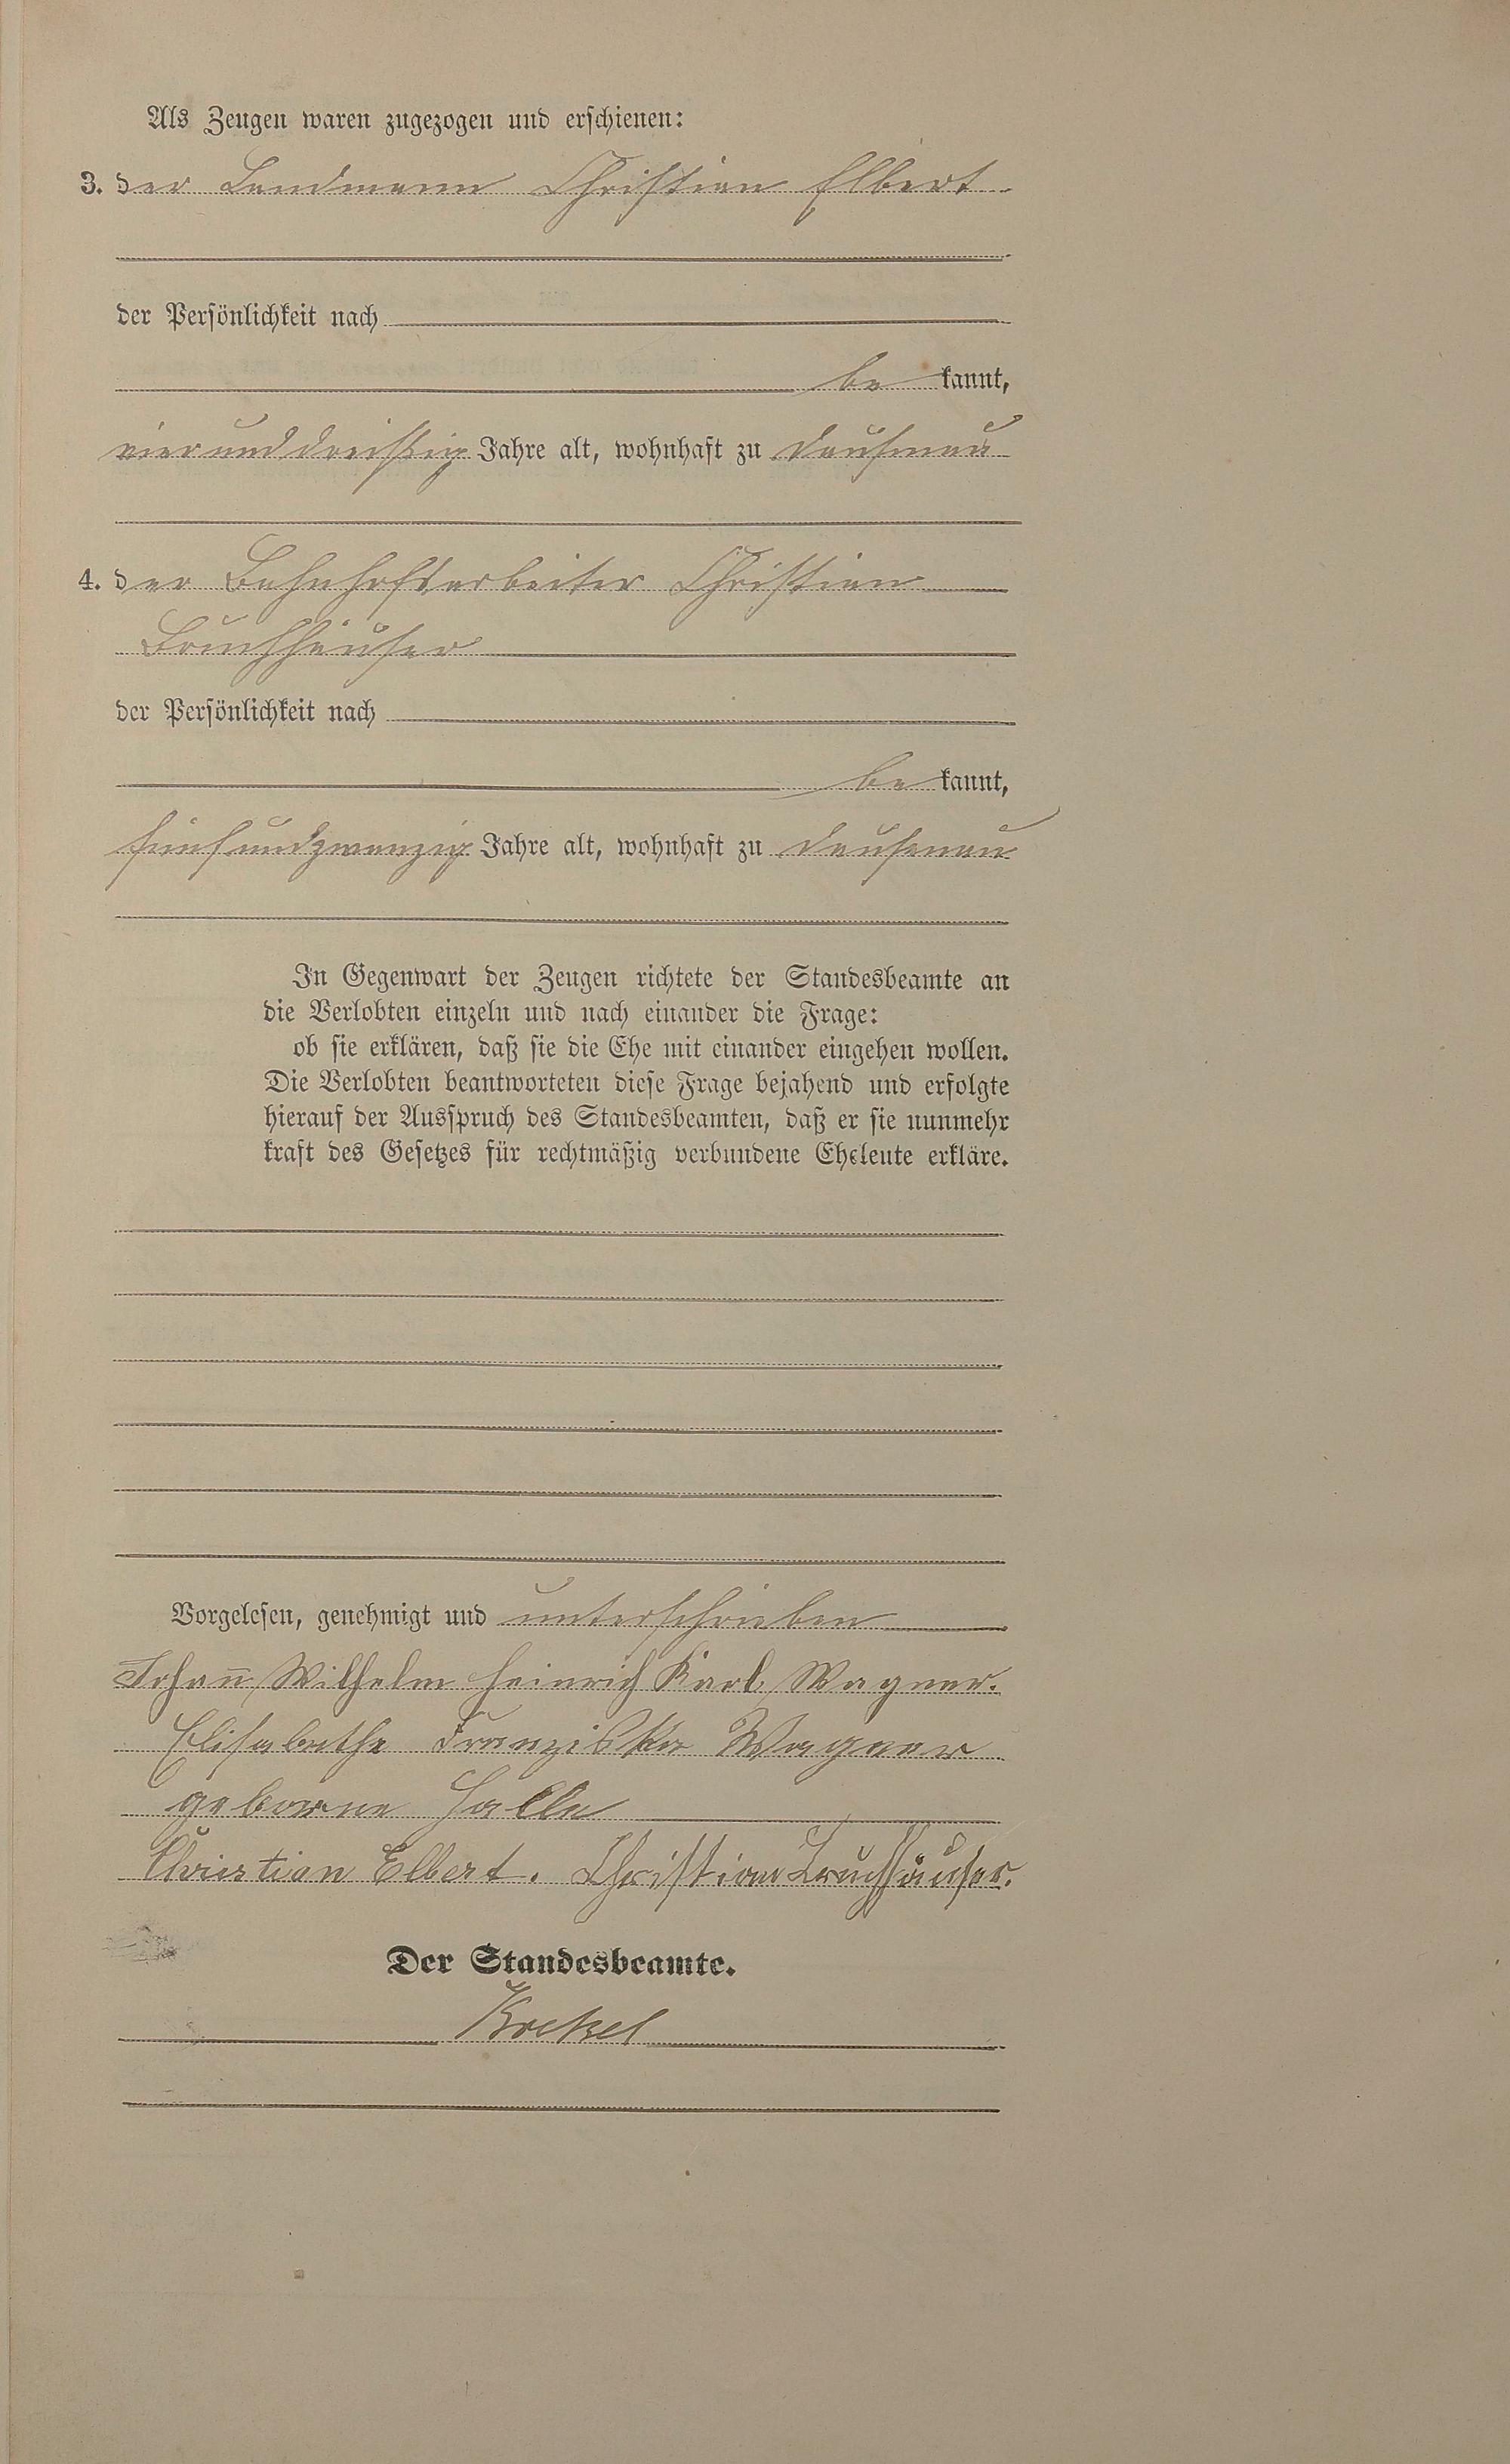 Als Zeugen waren zugezogen und erschienen:
3. der Landmann Christian Elbert
der Persönlichkeit nach
be kannt,
vierunddreißig Jahre alt, wohnhaft zu Dausenau
4. der Bahnhofsarbeiter Christian
Bruchhäuser
der Persönlichkeit nach
be kannt,
fünfundzwanzig Jahre alt, wohnhaft zu Dausenau
In Gegenwart der Zeugen richtete der Standesbeamte an
die Verlobten einzeln und nach einander die Frage:
ob sie erklären, daß sie die Ehe mit einander eingehen wollen.
Die Verlobten beantworteten diese Frage bejahend und erfolgte
hierauf der Ausspruch des Standesbeamten, daß er sie nunmehr
kraft des Gesetzes für rechtmäßig verbundene Eheleute erkläre.
Vorgelesen, genehmigt und unterschrieben
Johann Wilhelm Heinrich Karl Wagner.
Elisabethe Franziska Wagner
geborne Halle
Christian Elbert. Christian Bruchhäuser.
Der Standesbeamte.